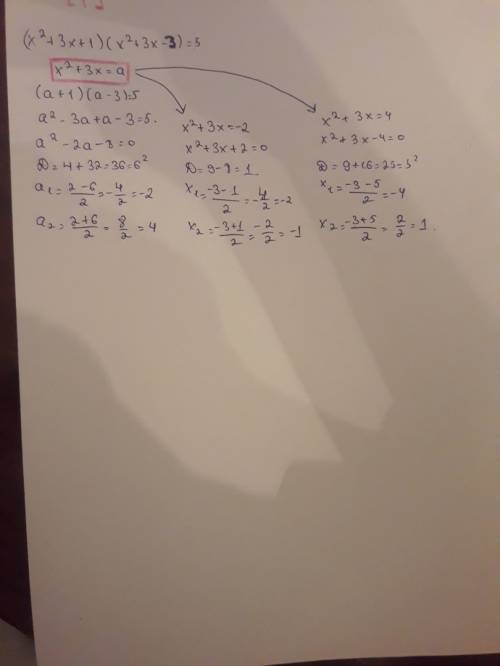 (x²+3x+1)(x²+3x-3)=5
x²+3x=a
(a+1)(a-3)=5
a²-3a+a-3=5.
a²-2a-8=0
D=4+32=36=6²
a₁=\frac{2-6}{2}=-\frac{4}{2}=-2
a₂=\frac{2+6}{2}=\frac{8}{2}=4
x²+3x=-2
x²+3x+2=0
D=9-8=1.
x₁=\frac{-3-1}{2}=-\frac{4}{2}=-2
x₂=\frac{-3+1}{2}=\frac{-2}{2}=-1
x²+3x=4
x²+3x-4=0
D=9+16=25=5²
x₁=\frac{-3-5}{2}=-4
x₂=\frac{-3+5}{2}=\frac{2}{2}=1.